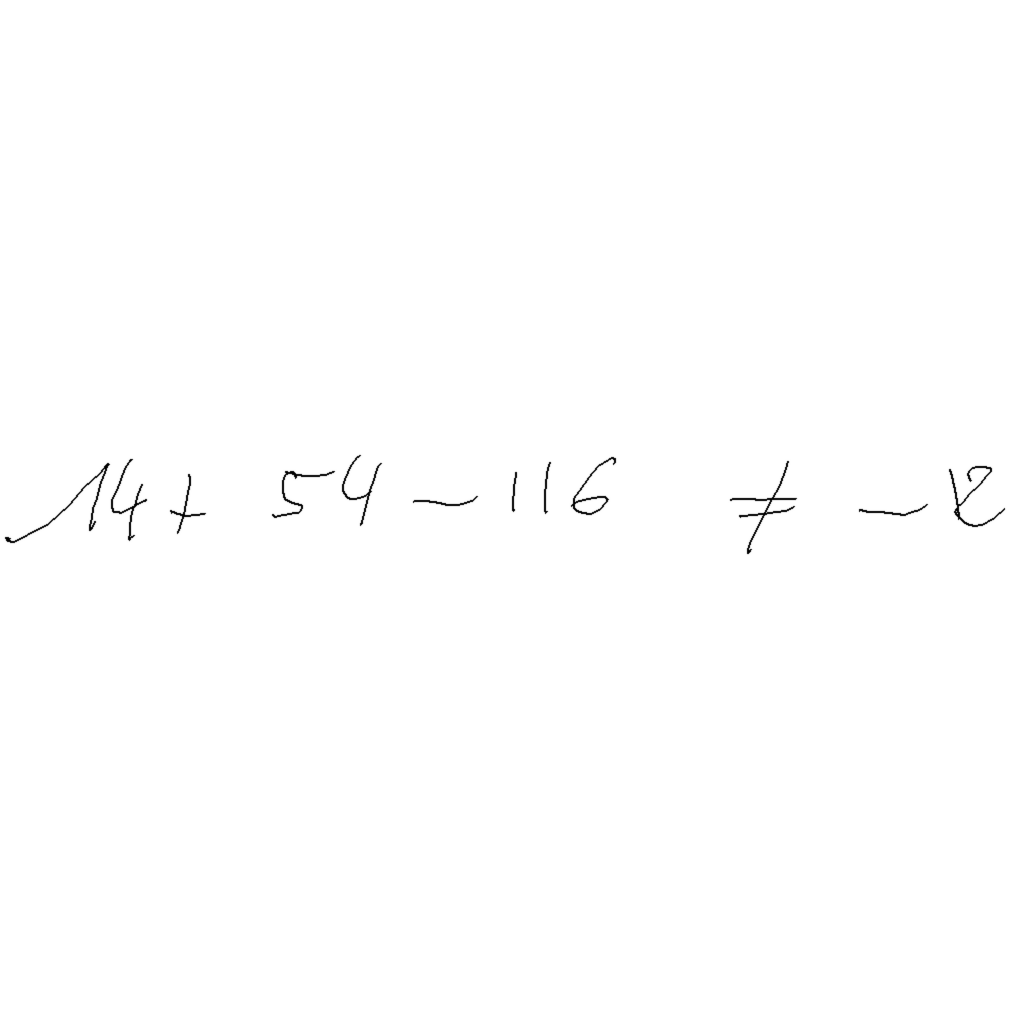 14 + 54 - 116 ≠ - 12